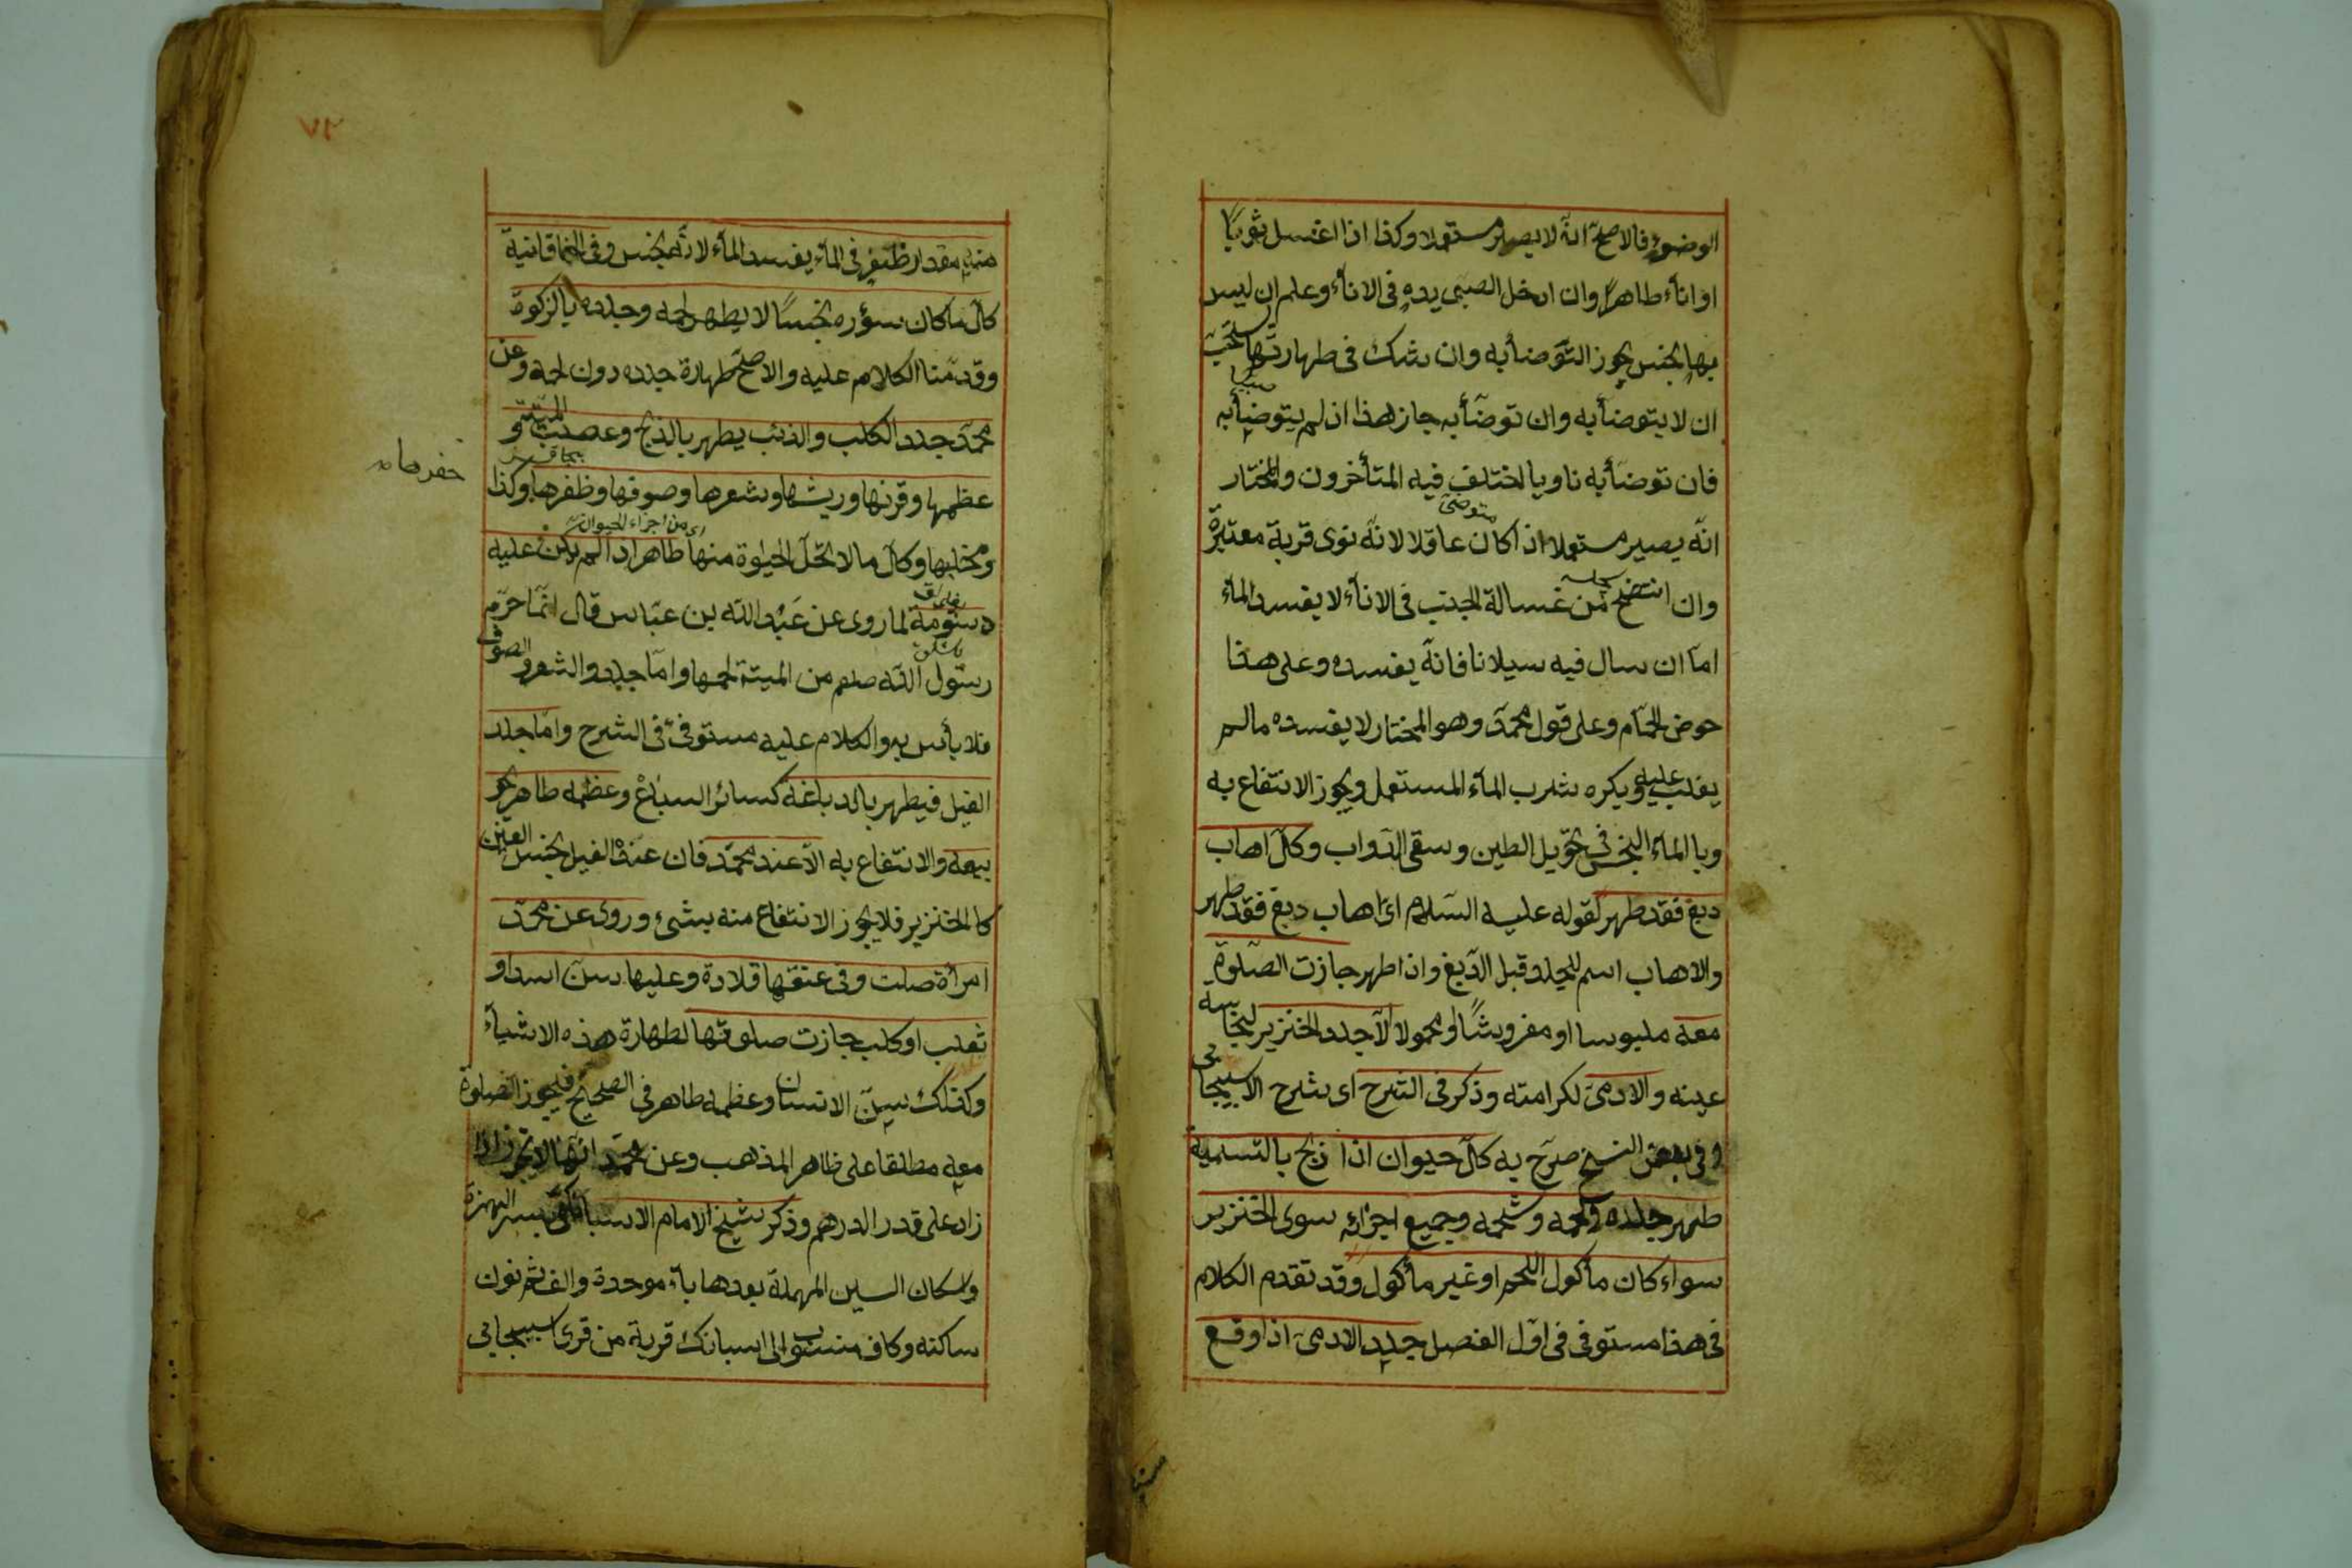 الوضوء فالاصح انه لا يصير مستعملا وكذا اذا اغسل ثوبًا
او اناء طاهرا وان ادخل الصبي يده فى الاناء وعلم ان ليس
بها نجس يجوز التوضأ به وان شك فى طهارتها يستحب
ان لا يتوضأ به وان توضأ به جاز هذا اذ لم يتوضأ به
فان توضأ به ناويا اختلف فيه المتأخرون والمختار
متوضئ
انه يصير مستعملا اذا كان عاقلا لانه نوى قربة معتبرة
وان انتضح من غسالة الجنب فى الاناء لا يفسد الماء
اما ان سال فيه سيلانا فانه يفسده وعلى هذا
حوض الحمام وعلى قول محمد وهو المختار لا يفسده مالم
يغلب عليه ويكره شرب الماء المستعمل ويجوز الانتفاع به
وبالماء النجس فى تحويل الطين وسقى الدواب وكل اهاب
دبغ فقد طهر لقوله عليه السلام اى اهاب دبغ فقد طهر
والاهاب اسم للجلد قبل الدبغ واذا طهر جازت الصلوة
معه ملبوسا او مفروشًا او محمولا الا جلد الخنزير لنجاسة
عينه والادمى لكرامته وذكر فى الشرح اى شرح الاسبيجابى
وفى بعض النسخ صرح به كل حيوان اذا ذبح بالتسمية
طهر جلده ولحمه وشحمه وجميع اجزائه سوى الخنزير
سواء كان مأكول اللحم او غير مأكول وقد تقدم الكلام
فى هذا مستوفى فى اول الفصل جلد الادمى اذا وقع
٧٢
منه مقدار ظفر فى الماء يفسد الماء لانه نجس وفى الخاقانية
كل ما كان سؤره نجسًا لا يطهر لحمه وجلده بالزكوة
وقدمنا الكلام عليه والاصح طهارة جلده دون لحمه وعن
محمد جلد الكلب والذئب يطهر بالذبح وعصب الميتة و
عظمها وقرنها وريشها وشعرها وصوفها وظفرها وكذا
اى من اجزاء الحيوان
ومخلبها وكل ما لا تحل الحيوة منها طاهر اذا لم يكن عليه
دسومة لما روى عن عبد الله بن عباس قال انما حرم
رسول الله صلعم من الميتة لحمها واما جلد والشعر والصوف
فلا بأس به والكلام عليه مستوفى فى الشرح واما جلد
الفيل فيطهر بالدباغة كسائر السباع وعظمه طاهر يجوز
بيعه والانتفاع به الا عند محمد فان عنده الفيل نجس العين
كالخنزير فلا يجوز الانتفاع منه بشىء وروى عن محمد
امرأة صلت وفى عنقها قلادة وعليها سن اسد او
ثعلب او كلب جازت صلوتها لطهارة هذه الاشياء
وكذلك سن الانسان وعظمه طاهر فى الصحيح فيجوز الصلوة
معه مطلقا على ظاهر المذهب وعن محمد انها لا تجوز اذا
زاد على قدر الدرهم وذكر شيخ الامام الاسبانكى بكسر الهمزة
واسكان السين المهملة بعدها باء موحدة والف ثم نون
ساكنه وكاف منسوب الى اسبانك قرية من قرى اسبيجابى